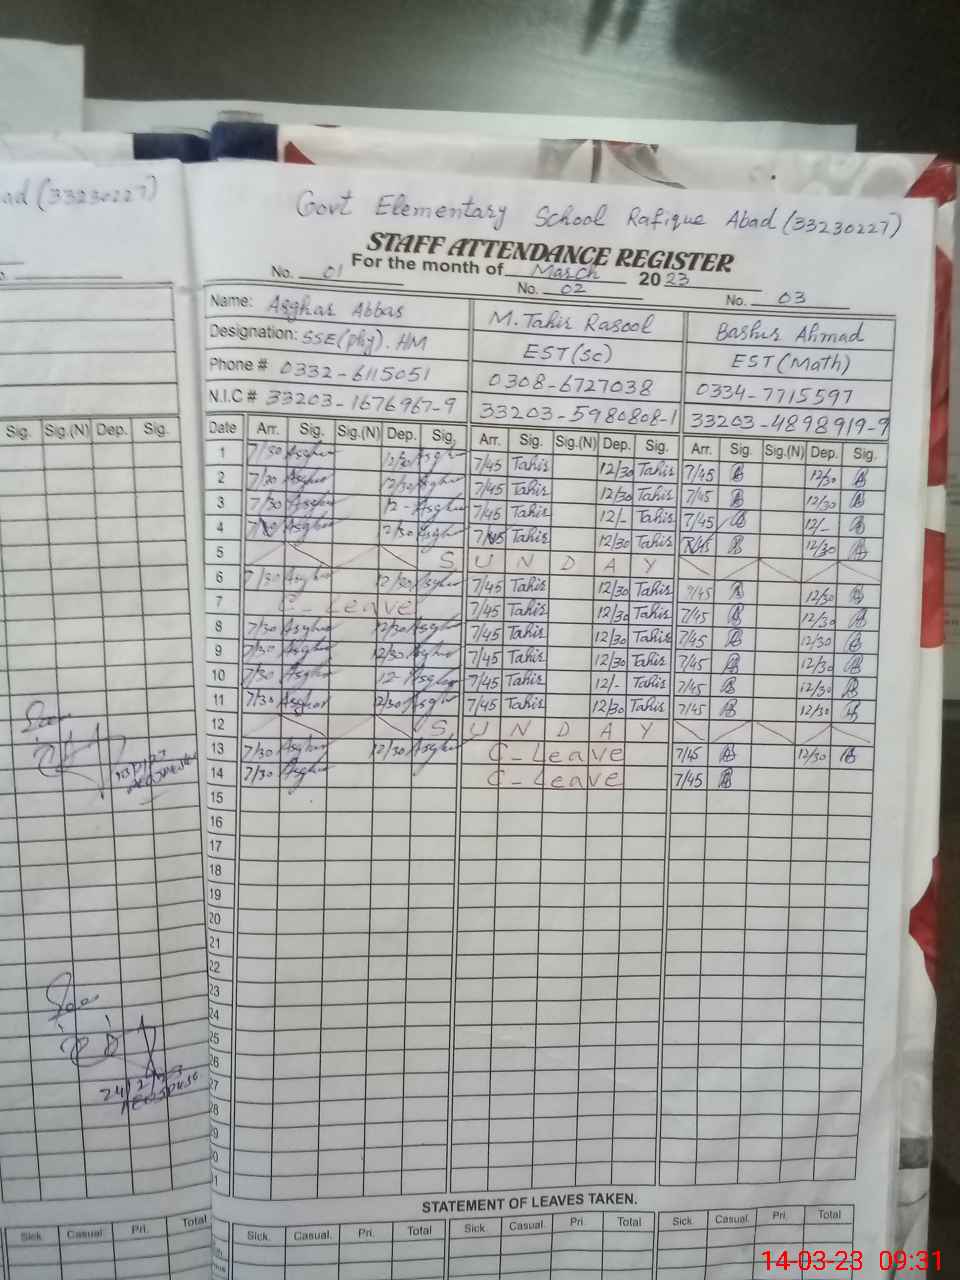 ad (33230227)
Govt Elementary School Rafique Abad (33230227)
STAFF ATTENDANCE REGISTER
For the month of March 2023
No. 01 No. 02 No. 03
Name: Asghar Abbas M. Tahir Rasool Bashir Ahmad
Designation: SSE(phy). HM EST(SC) EST(Math)
Phone # 0332-6115051 0308-6727038 0334-7715597
N.I.C # 33203-1676967-9 33203-5980808-1 33203-4898919-9
Sig. Sig.(N) Dep. Sig.
Date Arr. Sig. Sig.(N) Dep. Sig. Arr. Sig. Sig.(N) Dep. Sig. Arr. Sig. Sig.(N) Dep. Sig.
1 7/30 Asghar 12/30 Asghar 7/45 Tahir 12/30 Tahir 7/45 12/30
2 7/30 Asghar 12/30 Asghar 7/45 Tahir 12/30 Tahir 7/45 12/30
3 7/30 Asghar 12- Asghar 7/45 Tahir 12/- Tahir 7/45 12/-
4 Asghar 12/30 Asghar 7/45 Tahir 12/30 Tahir 12/30
5 SUNDAY
6 7/30 Asghar 12/30 Asghar 7/45 Tahir 12/30 Tahir 7/45 12/30
7 C-Leave 7/45 Tahir 12/30 Tahir 7/45 12/30
8 7/30 Asghar 12/30 Asghar 7/45 Tahir 12/30 Tahir 7/45 12/30
9 7/30 Asghar 12/30 Asghar 7/45 Tahir 12/30 Tahir 7/45 12/30
10 7/30 Asghar 12- Asghar 7/45 Tahir 12/- Tahir 7/45 12/30
11 7/30 Asghar 12/30 Asghar 7/45 Tahir 12/30 Tahir 7/45 12/30
12 SUNDAY
13 7/30 Asghar 12/30 Asghar C-Leave 7/45 12/30
14 7/30 Asghar C-Leave 7/45
15
16
17
18
19
20
21
22
23
24
25
26
27
28
STATEMENT OF LEAVES TAKEN.
Sick. Casual. Pri. Total Sick. Casual. Pri. Total Sick. Casual. Pri. Total Sick. Casual. Pri. Total
14-03-23 09:31